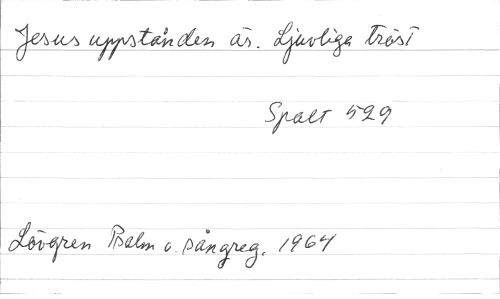 Jesus uppstånden är. Ljuvliga tröst
Spalt 529
Lövgren Psalm o. sångreg. 1964